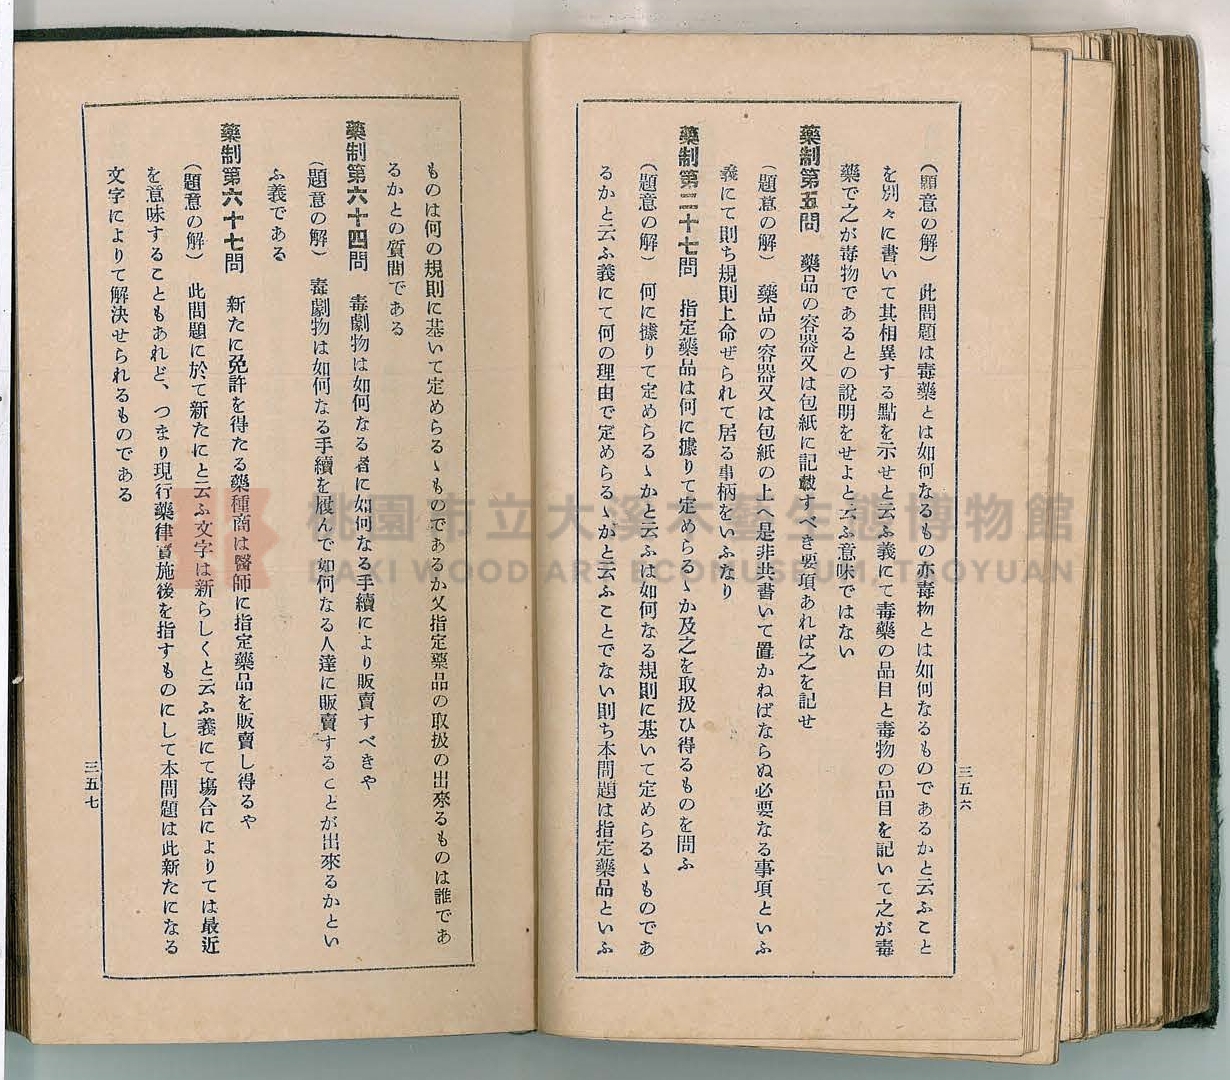 (題意の解) 此問題は毒藥とは如何なるもの亦毒物とは如何なるものであるかと云ふこと
を別々に書いて其相異する點を示せと云ふ義にて毒藥の品目と毒物の品目を記いて之が毒
藥で之が毒物であるとの說明をせよと云ふ意味ではない
藥制第五問 藥品の容器又は包紙に記載すべき要項あれば之を記せ
(題意の解) 藥品の容器又は包紙の上へ是非共書いて置かねばならぬ必要なる事項といふ
義にて則ち規則上命ぜられて居る事柄をいふなり
藥制第二十七問 指定藥品は何に據りて定めらるゝか及之を取扱ひ得るものを問ふ
(題意の解) 何に據りて定めらるゝかと云ふは如何なる規則に基いて定めらるゝものであ
るかと云ふ義にて何の理由で定めらるゝかと云ふことでない則ち本問題は指定藥品といふ
三五六
ものは何の規則に基いて定めらるゝものであるか又指定藥品の取扱の出來るものは誰であ
るかとの質問である
藥制第六十四問 毒劇物は如何なる者に如何なる手續により販賣すべきや
(題意の解) 毒劇物は如何なる手續を履んで如何なる人達に販賣することが出來るかとい
ふ義である
藥制第六十七問 新たに免許を得たる藥種商は醫師に指定藥品を販賣し得るや
(題意の解) 此問題に於て新たにと云ふ文字は新らしくと云ふ義にて塲合によりては最近
を意味することもあれど、つまり現行藥律實施後を指すものにして本問題は此新たになる
文字によりて解決せられるものである
三五七
桃園市立大溪木藝生態博物館
DAXI WOOD ART ECOMUSEUM, TAOYUAN